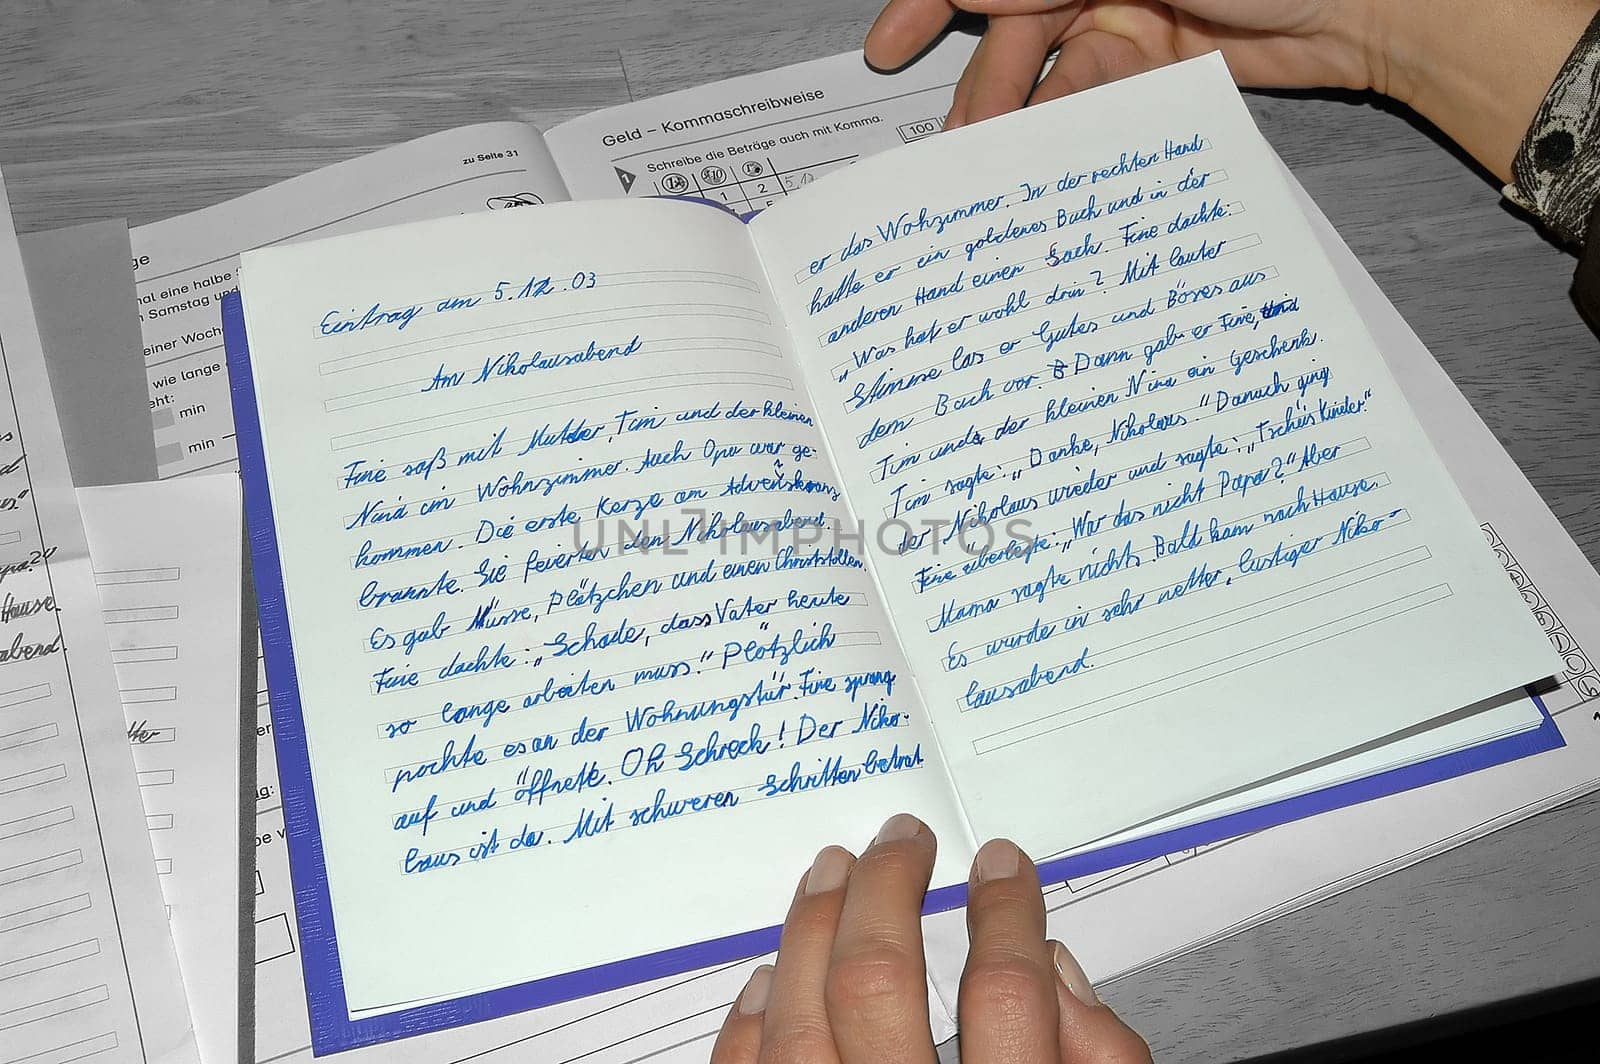 Geld – Kommaschreibweise
Schreibe die Beträge auch mit Komma.
100
1
zu Seite 31
ge
nal eine halbe S
n Samstag und
einer Woche
wie lange
eht:
min
min
Eintrag am 5.12.03
Am Nikolausabend
Fine saß mit Mutter, Tim und der kleinen
Nina im Wohnzimmer. Auch Opa war ge-
kommen. Die erste Kerze am Adventskranz
brannte. Sie feierten den Nikolausabend.
Es gab Nüsse, Plätzchen und einen Christstollen.
Fine dachte: „Schade, dass Vater heute
so lange arbeiten muss." Plötzlich
pochte es an der Wohnungstür. Fine sprang
auf und öffnete. Oh Schreck! Der Niko-
laus ist da. Mit schweren Schritten betrat
er das Wohzimmer. In der rechten Hand
hatte er ein goldenes Buch und in der
anderen Hand einen Sack. Fine dachte:
„Was hat er wohl drin? Mit lauter
Stimme las er Gutes und Böses aus
dem Buch vor. Dann gab er Fine,
Tim und der kleinen Nina ein Geschenk.
Tim sagte: „Danke, Nikolaus." Danach ging
der Nikolaus wieder und sagte: „Tschüs Kinder."
Fine überlegte: „War das nicht Papa?" Aber
Mama sagte nichts. Bald kam nach Hause.
Es wurde in sehr netter, lustiger Niko-
lausabend.
Hause.
abend.
UNLIMPHOTOS